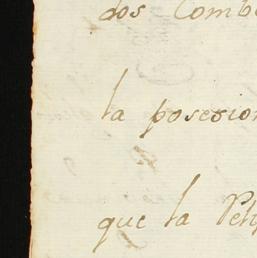 dos Comb
la posesion
que la Peti